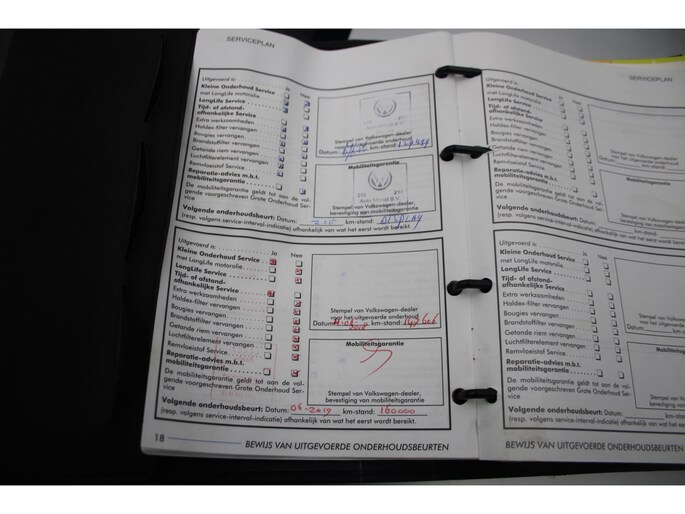 SERVICEPLAN
Uitgevoerd is: Ja Nee
Kleine Onderhoud Service
met LongLife motorolie
LongLife Service
Tijd- of afstand-
afhankelijke Service
Extra werkzaamheden
Haldex-filter vervangen
Bougies vervangen
Brandstoffilter vervangen
Getande riem vervangen
Luchtfilterelement vervangen
Remvloeistof Service
Reparatie-advies m.b.t.
mobiliteitsgarantie
De mobiliteitsgarantie geldt tot aan de vol-
gende voorgeschreven Grote Onderhoud Ser-
vice
Stempel van Volkswagen-dealer
voor het uitgevoerde onderhoud
Datum: km-stand:
Mobiliteitsgarantie
Stempel van Volkswagen-dealer,
bevestiging van mobiliteitsgarantie
Volgende onderhoudsbeurt: Datum: km-stand: DISPLAY
(resp. volgens service-interval-indicatie) afhankelijk van wat het eerst wordt bereikt.
Uitgevoerd is: Ja Nee
Kleine Onderhoud Service
met LongLife motorolie
LongLife Service
Tijd- of afstand-
afhankelijke Service
Extra werkzaamheden
Haldex-filter vervangen
Bougies vervangen
Brandstoffilter vervangen
Getande riem vervangen
Luchtfilterelement vervangen
Remvloeistof Service
Reparatie-advies m.b.t.
mobiliteitsgarantie
De mobiliteitsgarantie geldt tot aan de vol-
gende voorgeschreven Grote Onderhoud Ser-
vice
Stempel van Volkswagen-dealer
voor het uitgevoerde onderhoud
Datum: 2018 km-stand: 142606
Mobiliteitsgarantie
Stempel van Volkswagen-dealer,
bevestiging van mobiliteitsgarantie
Volgende onderhoudsbeurt: Datum: 06-2019 km-stand: 160000
(resp. volgens service-interval-indicatie) afhankelijk van wat het eerst wordt bereikt.
18 BEWIJS VAN UITGEVOERDE ONDERHOUDSBEURTEN
SERVICEPLAN
Uitgevoerd is:
Kleine Onderhoud Service
met LongLife motorolie
LongLife Service
Tijd- of afstand-
afhankelijke Service
Extra werkzaamheden
Haldex-filter vervangen
Bougies vervangen
Brandstoffilter vervangen
Getande riem vervangen
Luchtfilterelement vervangen
Remvloeistof Service
Reparatie-advies m.b.t.
mobiliteitsgarantie
De mobiliteitsgarantie geldt tot aan de vol-
gende voorgeschreven Grote Onderhoud Ser-
vice
Volgende onderhoudsbeurt: Datum:
(resp. volgens service-interval-indicatie) afhankelijk van
Uitgevoerd is: Ja Nee
Kleine Onderhoud Service
met LongLife motorolie
LongLife Service
Tijd- of afstand-
afhankelijke Service
Extra werkzaamheden
Haldex-filter vervangen
Bougies vervangen
Brandstoffilter vervangen
Getande riem vervangen
Luchtfilterelement vervangen
Remvloeistof Service
Reparatie-advies m.b.t.
mobiliteitsgarantie
De mobiliteitsgarantie geldt tot aan de vol-
gende voorgeschreven Grote Onderhoud Ser-
vice
Volgende onderhoudsbeurt: Datum:
(resp. volgens service-interval-indicatie) afhankelijk van wat
BEWIJS VAN UITGEVOERDE ONDERHOUDSBEURTEN